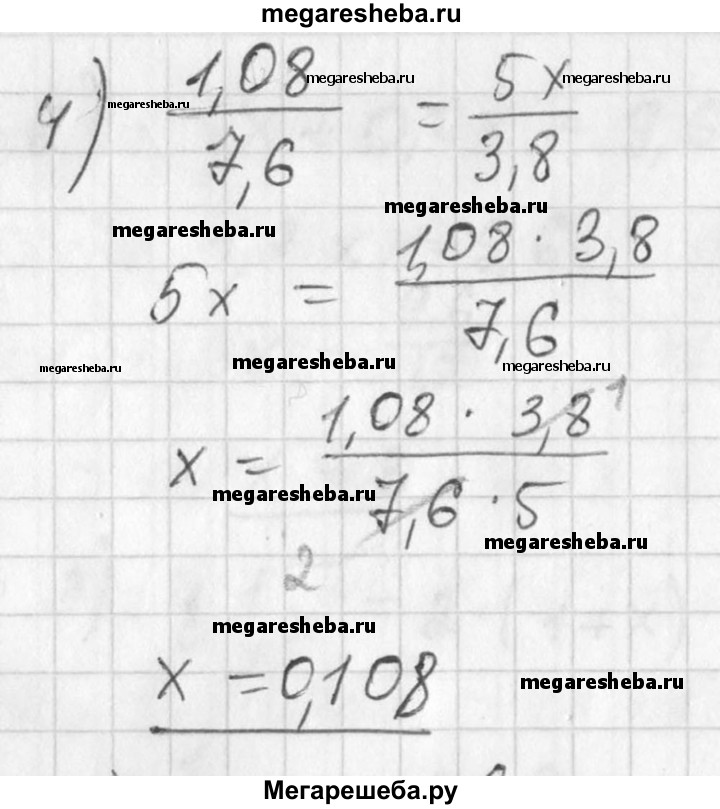 megaresheba.ru
4) 1,08 / 7,6 = 5x / 3,8
megaresheba.ru megaresheba.ru megaresheba.ru
megaresheba.ru megaresheba.ru
5x = 1,08 · 3,8 / 7,6
megaresheba.ru megaresheba.ru megaresheba.ru
x = 1,08 · 3,8 1 / 7,6 · 5 2
megaresheba.ru megaresheba.ru
megaresheba.ru
x = 0,108
megaresheba.ru
Мегарешеба.ру